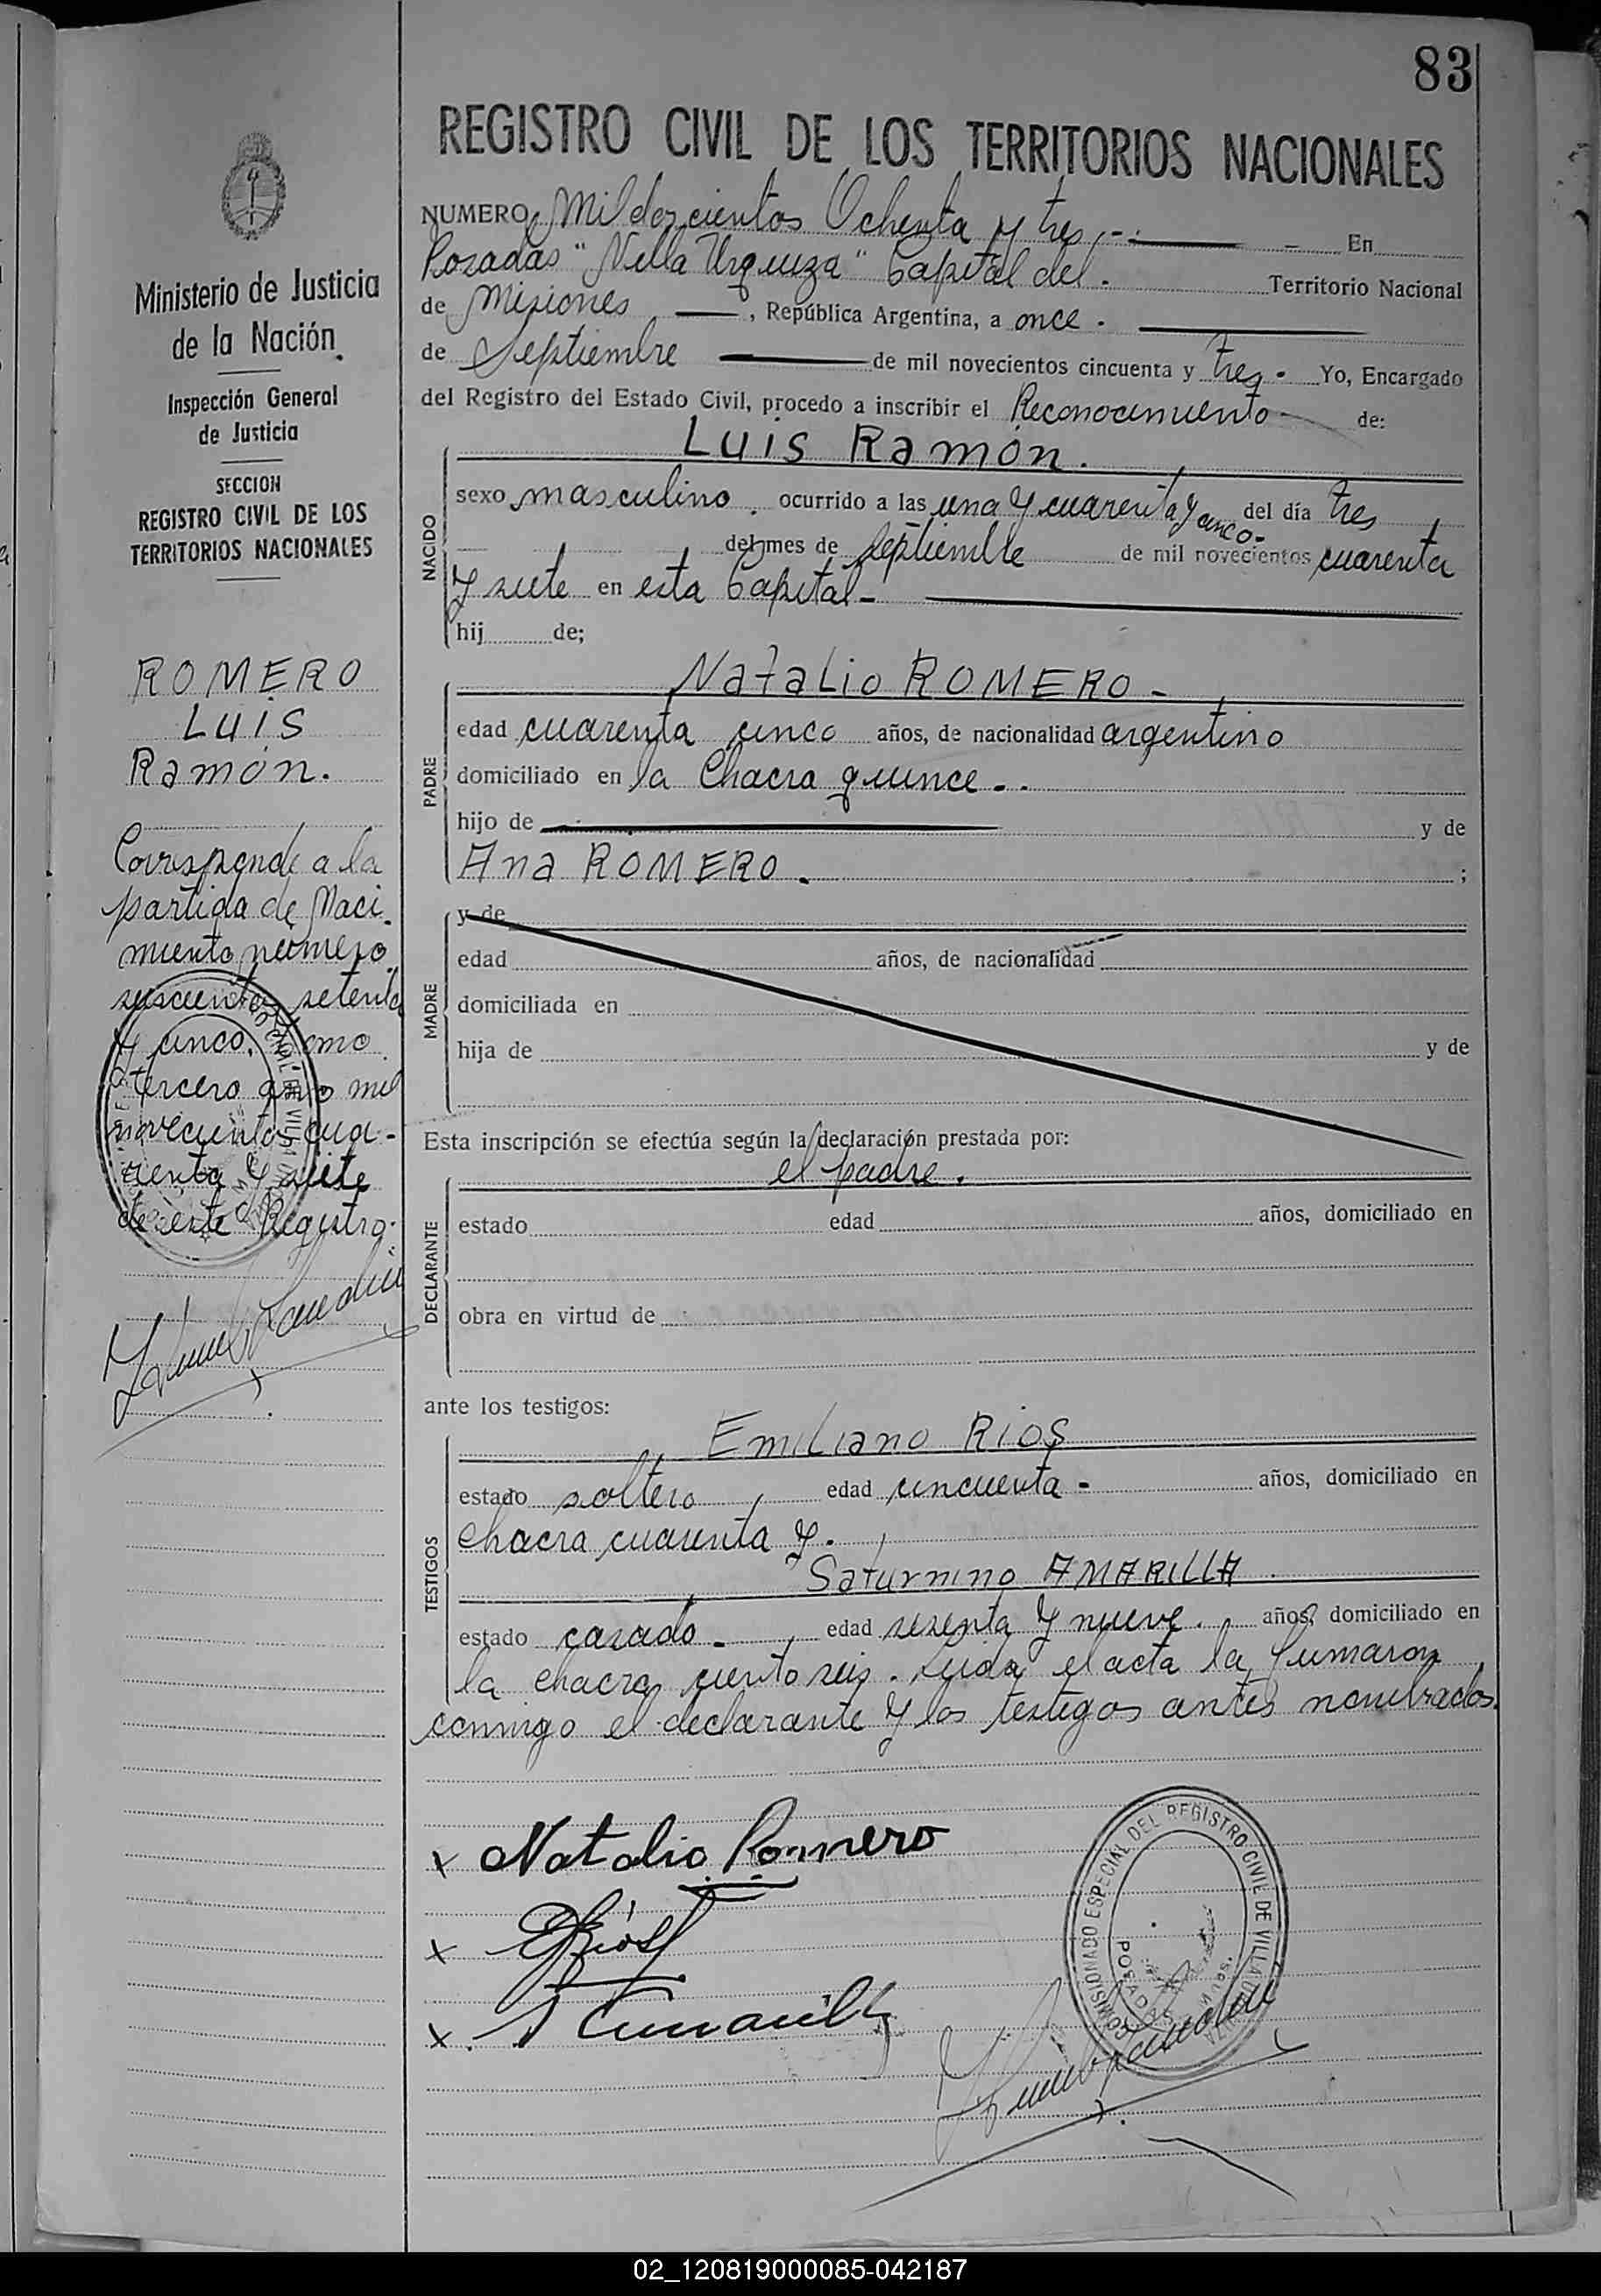 83
REGISTRO CIVIL DE LOS TERRITORIOS NACIONALES
NUMERO Mil doscientos Ochenta y tres.- En
Posadas "Villa Urquiza" Capital del. Territorio Nacional
de Misiones, República Argentina, a once.
de Septiembre de mil novecientos cincuenta y tres. Yo, Encargado
del Registro del Estado Civil, procedo a inscribir el Reconocimiento de:
Luis Ramón.
NACIDO
sexo masculino, ocurrido a las una y cuarenta y cinco- del día tres
del mes de septiembre de mil novecientos cuarenta
y siete en esta Capital-
hij de;
Natalio ROMERO-
PADRE
edad cuarenta cinco años, de nacionalidad argentino
domiciliado en la Chacra quince-.
hijo de y de
Ana ROMERO. ;
MADRE
y de
edad años, de nacionalidad
domiciliada en
hija de y de
Esta inscripción se efectúa según la declaración prestada por:
el padre.
DECLARANTE
estado edad años, domiciliado en
obra en virtud de
ante los testigos:
Emiliano RIOS
TESTIGOS
estado soltero, edad cincuenta- años, domiciliado en
chacra cuarenta y.
Saturnino AMARILLA.
estado casado-, edad sesenta y nueve. años, domiciliado en
la chacra ciento seis. Leida el acta la firmaron
conmigo el declarante y los testigos antes nombrados.
x Natalio Romero
x ERíos
x. S Amarilla
COMISIONADO ESPECIAL DEL REGISTRO CIVIL DE VILLA URQUIZA
POSADAS
Ministerio de Justicia
de la Nación
Inspección General
de Justicia
SECCION
REGISTRO CIVIL DE LOS
TERRITORIOS NACIONALES
ROMERO
LUIS
Ramón.
Corresponde a la
partida de Naci-
miento número
seiscientos setenta
y cinco, tomo
tercero año mil
novecientos cua-
renta y siete
de este Registro.
02_120819000085-042187